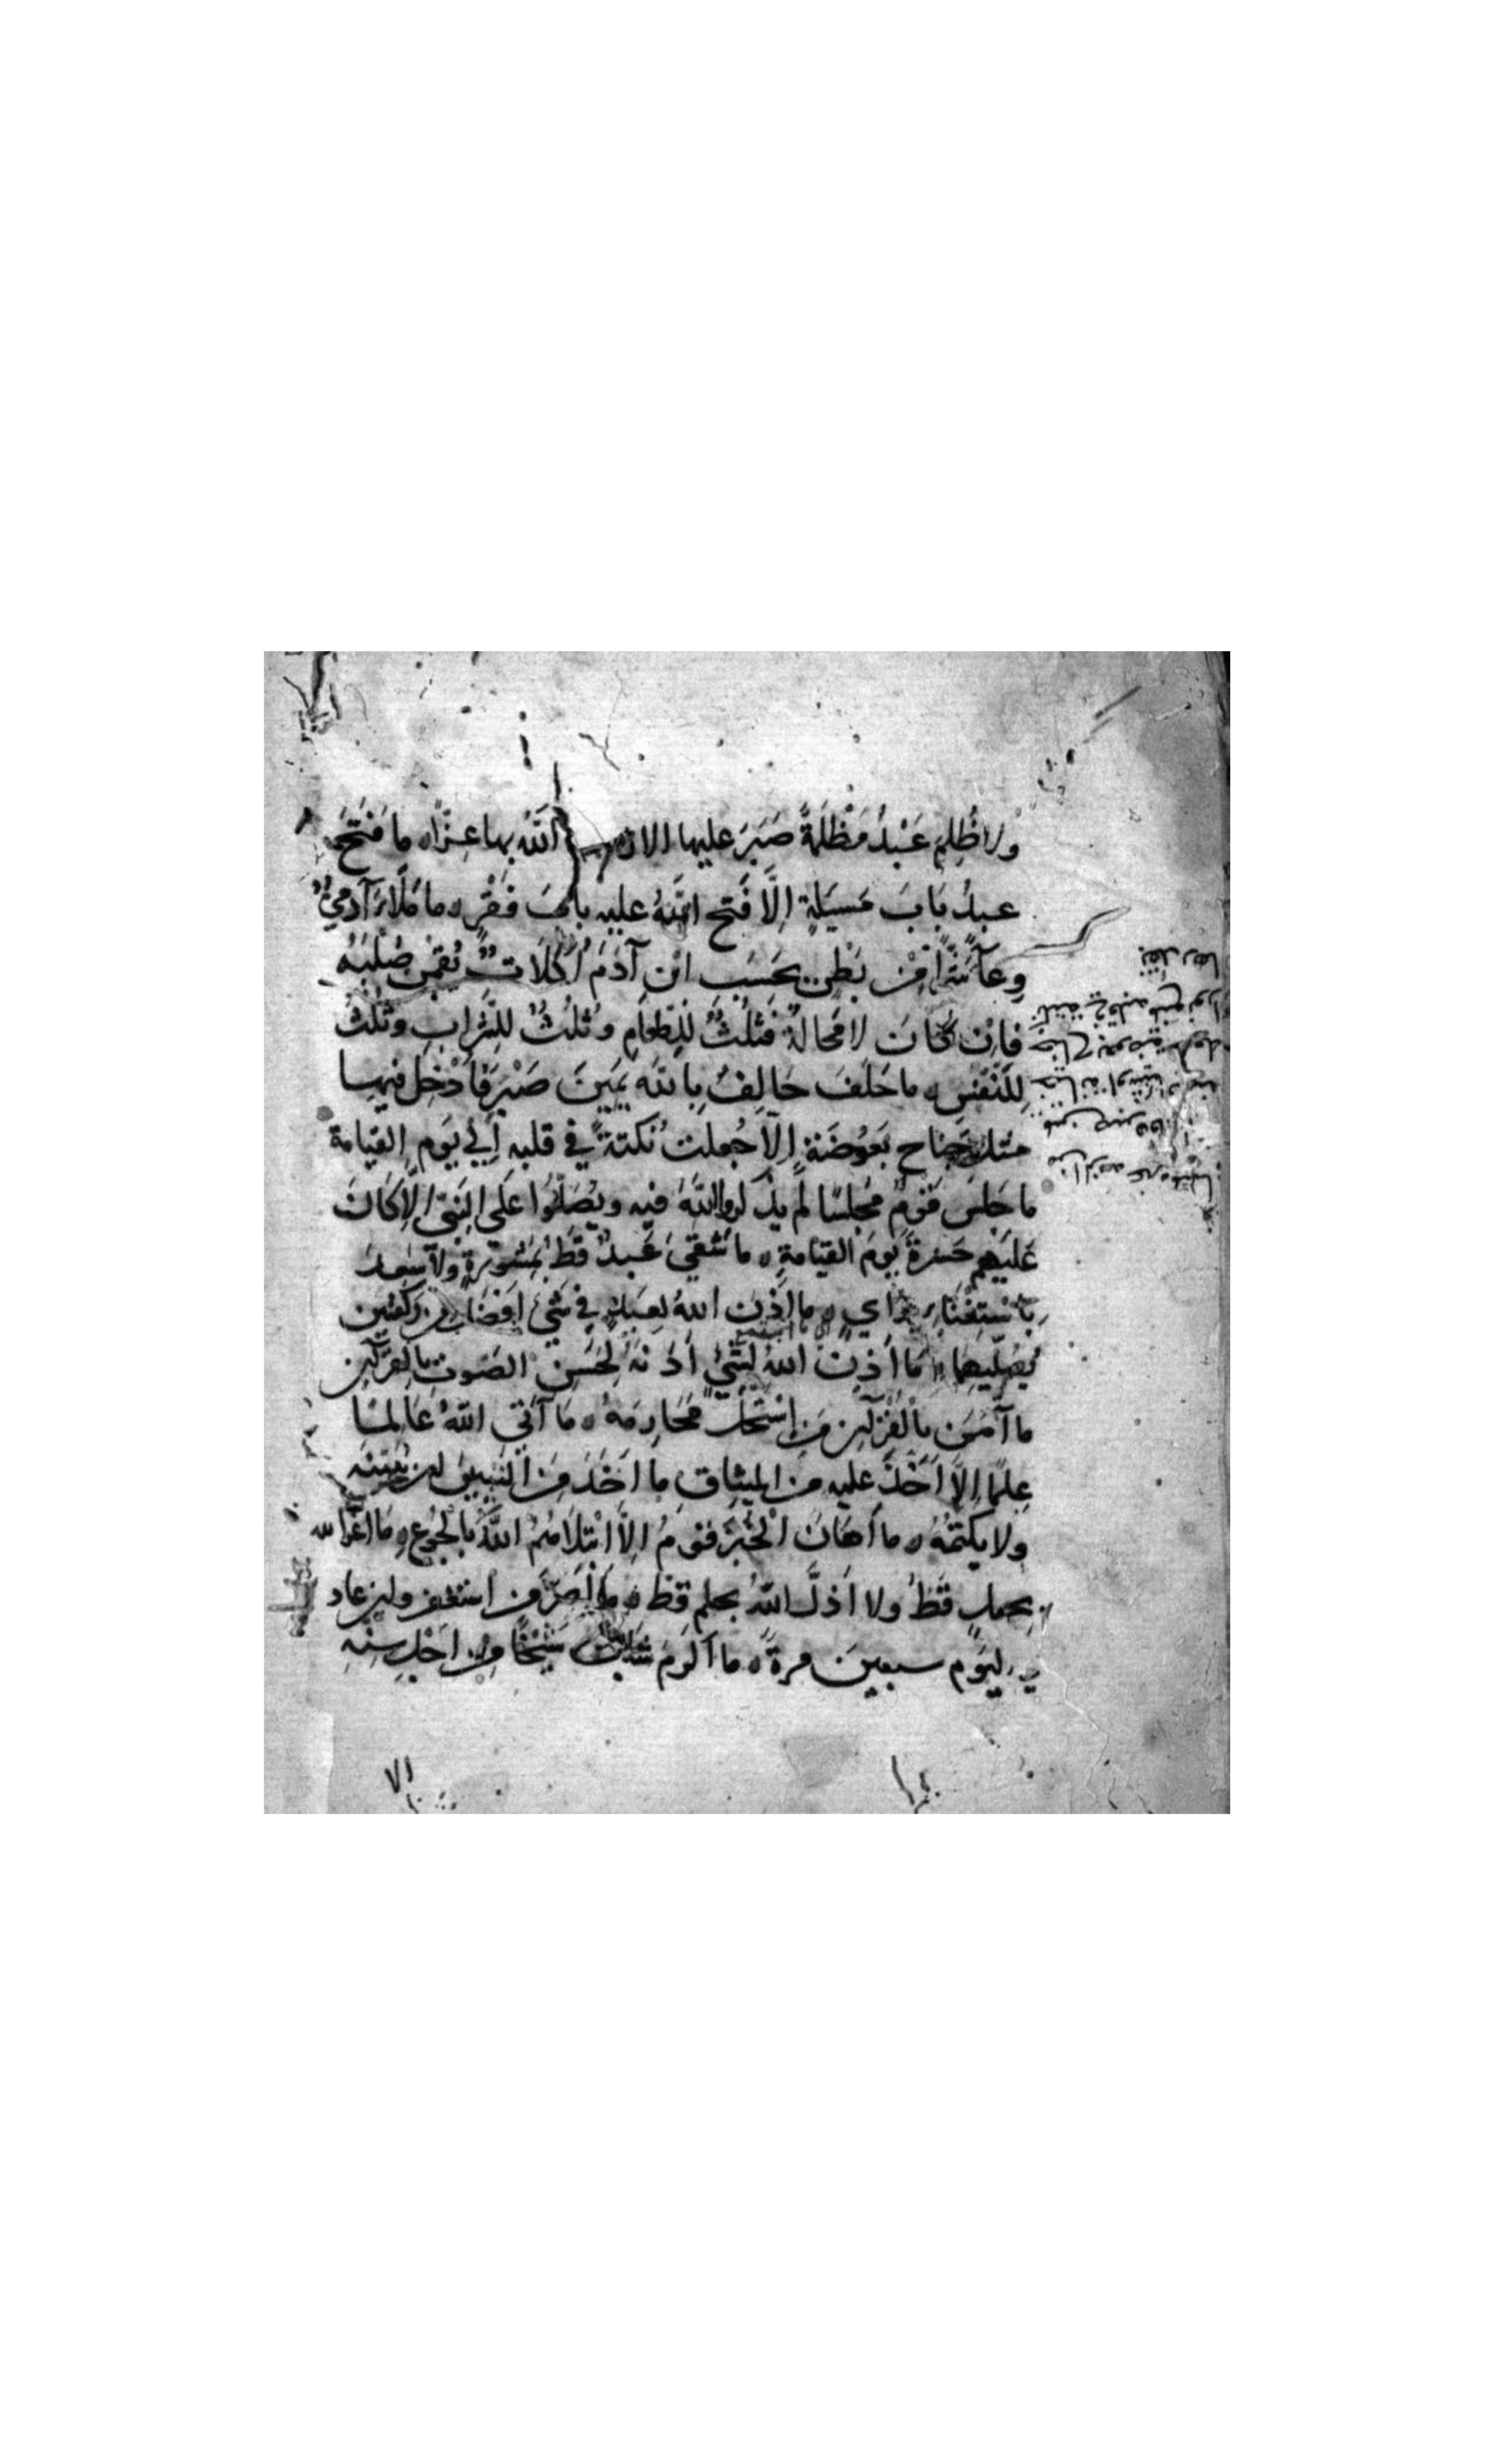 ولا ظُلِمَ عَبْدٌ مَظْلَمَةً صَبَرَ عليها الا زاده اللَّهُ بها عِزًّا ه ما فَتَحَ
عبدٌ بَابَ مَسئَلةٍ إِلَّا فَتَحَ اللَّهُ عليه بابَ فَقْرٍ ه ما مَلَأَ آدَمِيٌّ
وِعَآءً شَرًّا مِّنْ بَطْنٍ بحَسْبِ ابنِ آدَمَ أُكُلَاتٌ يُقِمْنَ صُلْبَهُ
فَإِنْ كَانَ لا مَحَالَةَ فَثُلُثٌ لِلطَّعَامِ وثُلُثٌ للشَّرابِ وثُلُثٌ
لِلنَّفَسِ ه ما حَلَفَ حَالِفٌ بِاللَّهِ يَمِينَ صَبْرٍ فَأَدْخَلَ فيها
مثلَ جَناحِ بَعُوضَةٍ إِلَّا جُعِلَتْ نُكْتةً في قلبه إلى يَومِ القيامة
ما جَلَسَ قَوْمٌ مَجْلِسًا لم يذكروا اللَّهَ فيه ويُصَلُّوا عَلَى النَّبِيِّ إِلَّا كَانَ
عَلَيْهِم حَسْرةً يَومَ القيامةِ ه ما شَقِيَ عَبدٌ قَطُّ بِمَشُورةٍ ولا سَعِدَ
بِاسْتِغْنَاءِ برَأيٍ ه ما أَذِنَ اللهُ لِعَبْدٍ في شَيْءٍ أَفضَلَ من رَكعتين
يُصَلِّيهِمَا ه مَا أَذِنَ اللهُ لِشَيْءٍ أَذَنَهُ لِحَسَنِ الصَّوتِ بالقرآنِ
ما آمَنَ بالْقُرْآنِ مَنِ اسْتَحَلَّ مَحَارِمَهُ ه مَا آتَى اللَّهُ عَالِمًا
عِلْمًا إِلَّا أَخَذَ عليه من الميثاقِ ما أَخَذَ مِنَ النَّبِيينَ ليُبَيِّنَنَّه
ولا يكتمُهُ ه ما أَهَانَ الْخُبْزَ قَومٌ إِلَّا ابْتَلَاهُمُ اللَّهُ بالجُوعِ ه مَا أعزَّ الله
بجهلٍ قَطُّ ولا أَذلَّ اللَّهُ بحلمٍ قَطُّ ه ما أَصَرَّ مَنِ استغفر ولو عاد
في اليَوم سبعينَ مرةً ه ما أكرَمَ شَابٌّ شَيْخًا مِن أَجْلِ سِنِّهِ